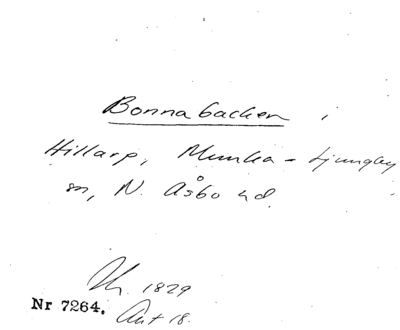 Bonnabacken,
Hillarp, Munka-Ljungby
sn, N. Åsbo hd
1829
Nr 7264. Akt 18.